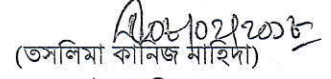 ০৮/০২/২০১৮
(তসলিমা কানিজ নাহিদা)